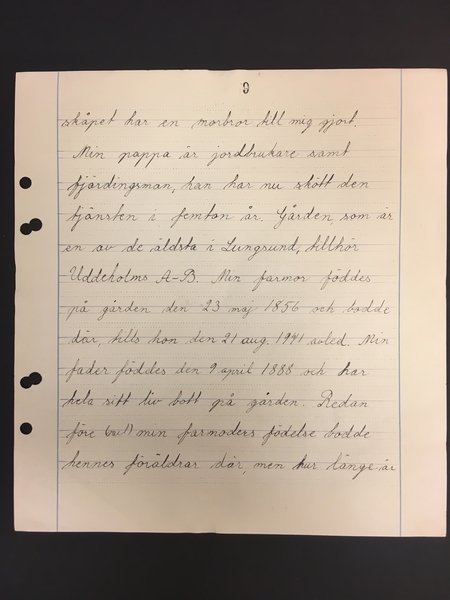 9
skåpet har en morbror till mig gjort.
Min pappa är jordbrukare samt
fjärdingsman, han har nu skött den
tjänsten i femton år. Gården, som är
en av de äldsta i Lungsund, tillhör
Uddeholms A-B. Min farmor föddes
på gården den 23 maj 1856 och bodde
där, tills hon den 21 aug. 1941 avled. Min
fader föddes den 9 april 1888 och har
hela sitt liv bott på gården. Redan
före min farmoders födelse bodde
hennes föräldrar där, men hur länge är